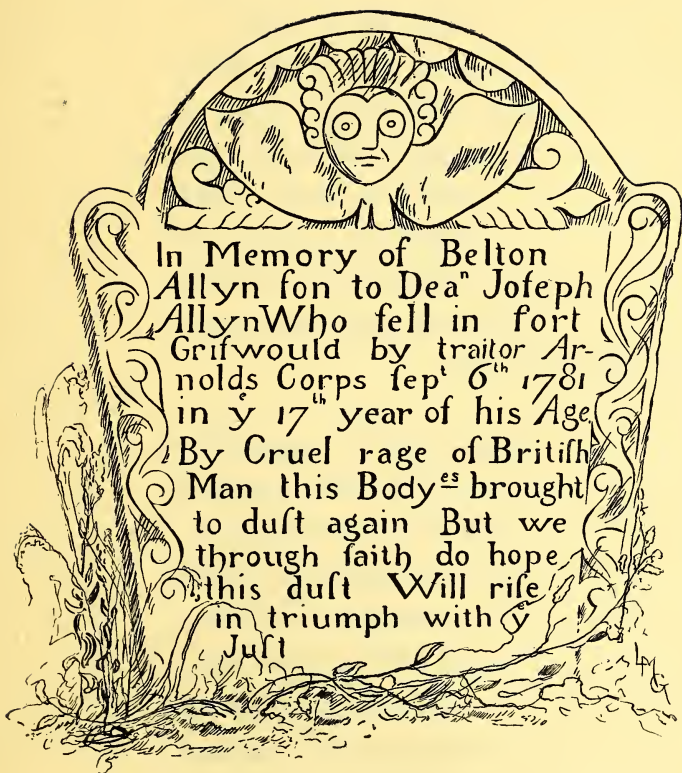 In Memory of Belton
Allyn ſon to Deaⁿ Joſeph
Allyn Who fell in fort
Griſwould by traitor Ar-
nolds Corps ſepᵗ 6ᵗʰ 1781
in yᵉ 17ᵗʰ year of his Age
By Cruel rage of Britiſh
Man this Body ᵉˢ brought
to duſt again But we
through faith do hope
this duſt Will riſe
in triumph with yᵉ
Juſt
LMG